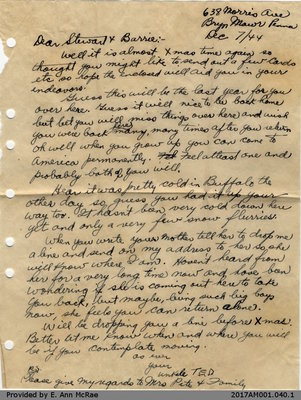 638 Morris Ave
Bryn Mawr Penna
Dec 7/44
Dear Stewart & Barrie:-
Well it is almost Xmas time again so
thought you might like to send out a few cards
etc so hope the enclosed will aid you in your
endeavors.
Guess this will be the last year for you
over here. Guess it will nice to be back home
but bet you will miss things over here and wish
you were back many, many times after you return
oh well when you grow up you can come to
America permanently. feel at least one and
probably both of you will.
Hear it was pretty cold in Buffalo the
other day so guess you had it up your
way too. It hasn't been very cold down here
yet and only a very few snow flurries.
When you write your mother tell her to drop me
a line and send on my address to her so she
will know where I am. Haven't heard from
her for a very long time now and have been
wondering if she is coming out here to take
you back, but maybe, being such big boys
now, she feels you can return alone.
Will be dropping you a line before Xmas.
Better let me know when and where you will
be if you contemplate moving.
as ever
your
uncle TED
Please give my regards to Mrs Pete & Family
Provided by E. Ann McRae
2017AM001.040.1